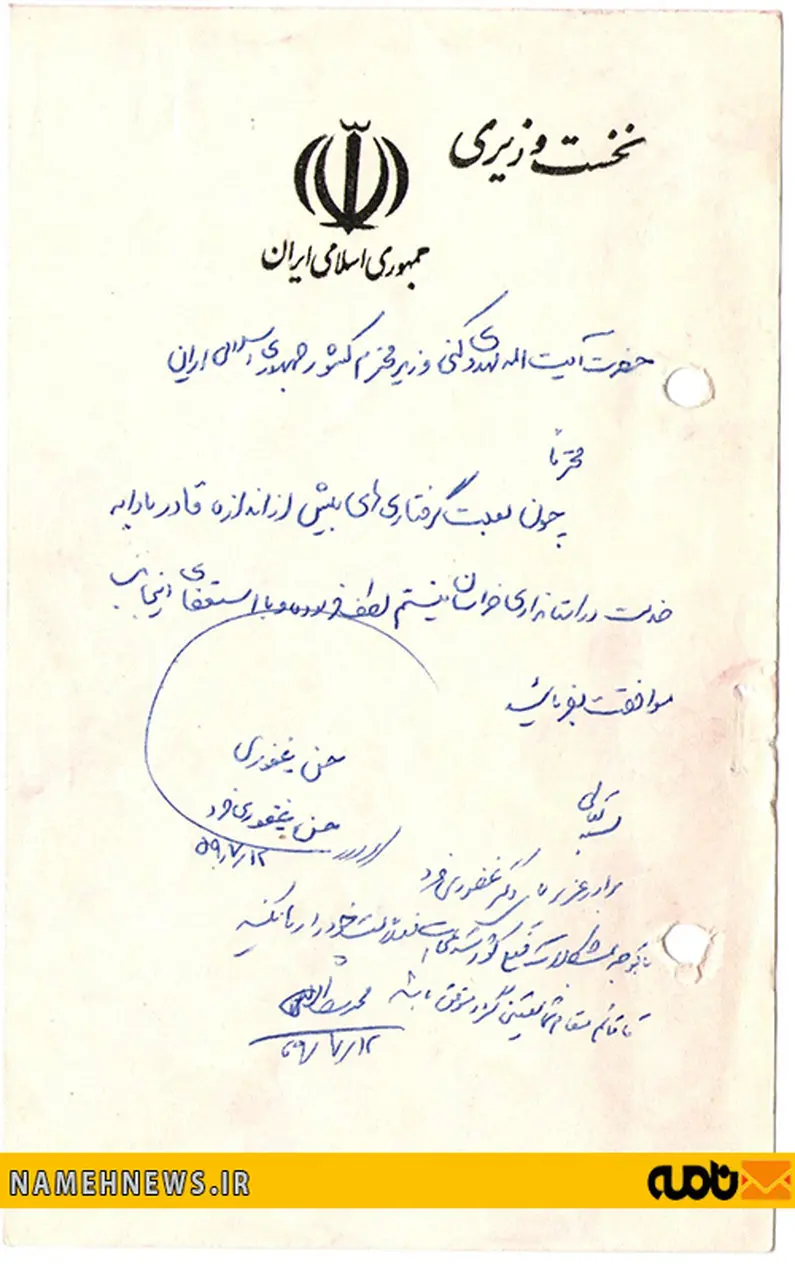 نخست وزیری
جمهوری اسلامی ایران
حضرت آیت اله مهدوی کنی وزیر محترم کشور جمهوری اسلامی ایران
محترماً
چون بعلت گرفتاری های بیش از اندازه قادر بادامه
خدمت در استانداری خراسان نیستم لطف فرموده و با استعفای اینجانب
موافقت بفرمائید
حسن غفوری
حسن غفوری فرد
۵۹/۷/۱۲
بسمه تعالی
برادر عزیز آقای دکتر غفوری فرد
با توجه بمشکلات کشور خود را
تا قائم مقام شما تعیین گردد موفق باشید
۵۹/۷/۱۲
NAMEHNEWS.IR
نامه